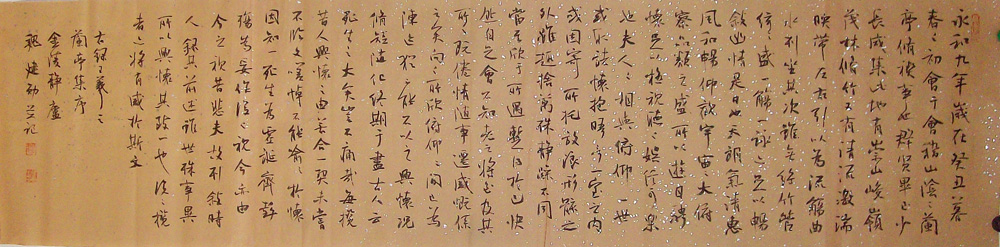 永和九年歲在癸丑暮
春之初會于會稽山陰蘭
亭脩禊事也群賢畢至少
長咸集此地有崇山峻嶺
茂林脩竹又有清流激湍
映帶左右引以為流觴曲
水列坐其次雖無絲竹管
弦之盛一觴一詠亦足以暢
敘幽情是日也天朗氣清惠
風和暢仰觀宇宙之大俯
察品類之盛所以遊目騁
懷足以極視聽之娛信可樂
也夫人之相與俯仰一世
或取諸懷抱晤言一室之內
或因寄所托放浪形骸之
外雖趣捨萬殊靜躁不同
當其欣於所遇暫得於己快
然自足不知老之將至及其
所之既倦情隨事遷感慨係
之矣向之所欣俯仰之間已為
陳迹猶不能不以之興懷況
脩短隨化終期于盡古人云
死生亦大矣豈不痛哉每攬
昔人興懷之由若合一契未嘗
不臨文嗟悼不能喻之於懷
固知一死生為虛誕齊彭
殤為妄作後之視今亦由
今之視昔悲夫故列敘時
人錄其所述雖世殊事異
所以興懷其致一也後之攬
者亦將有感於斯文
右錄王羲之
蘭亭集序
金陵靜廬